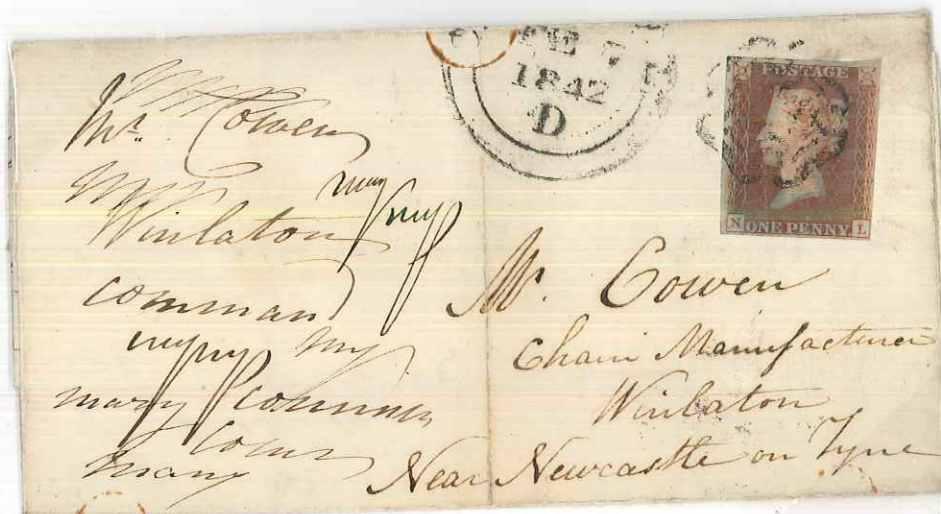 FE 7
1842
D
POSTAGE
N ONE PENNY L
Mr. Cowen
Winlaton
my
command
my
mary
many
Mr. Cowen
Chain Manufacturer
Winlaton
Near Newcastle on Tyne